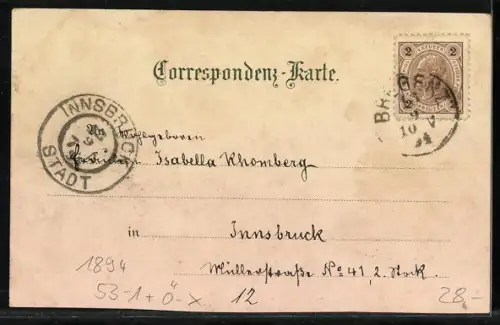 2 KREUZER 2
Correspondenz-Karte.
BREGENZ
9
10 V
94
INNSBRUCK
STADT
Wohlgeboren
Fräulein Isabella Rhomberg
in Innsbruck
Müllerstraße No 41, 2. Stock.
1894
53-1+Ö-X 12
28,-